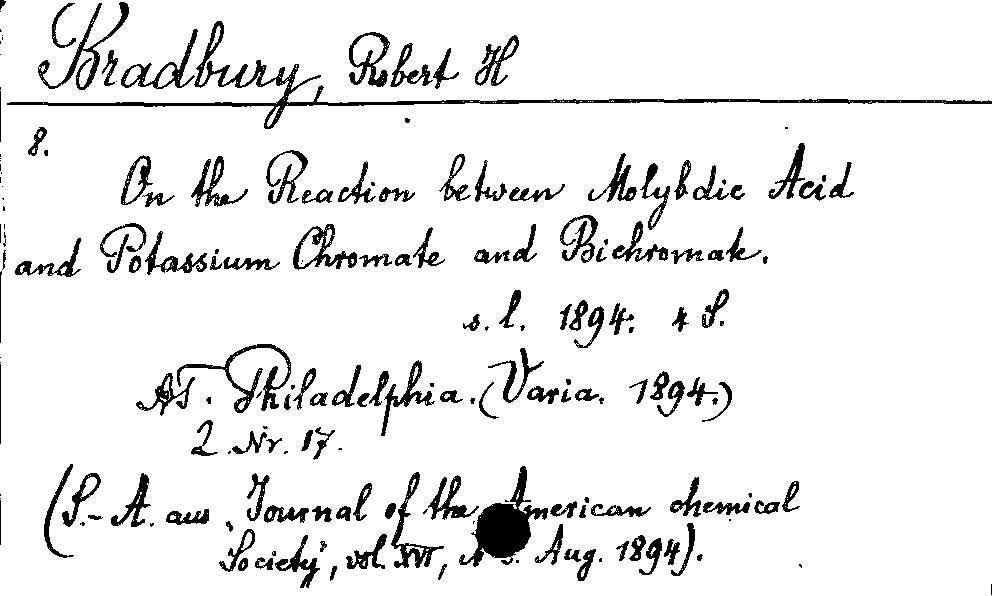 Bradbury, Robert H
8.
On the Reaction between Molybdic Acid
and Potassium Chromate and Bichromate.
s. l. 1894. 4 S.
AT. Philadelphia. (Varia. 1894.)
2. Nr. 17.
(S.-A. aus "Journal of the American chemical
Society", vol. XVI, Aug. 1894).